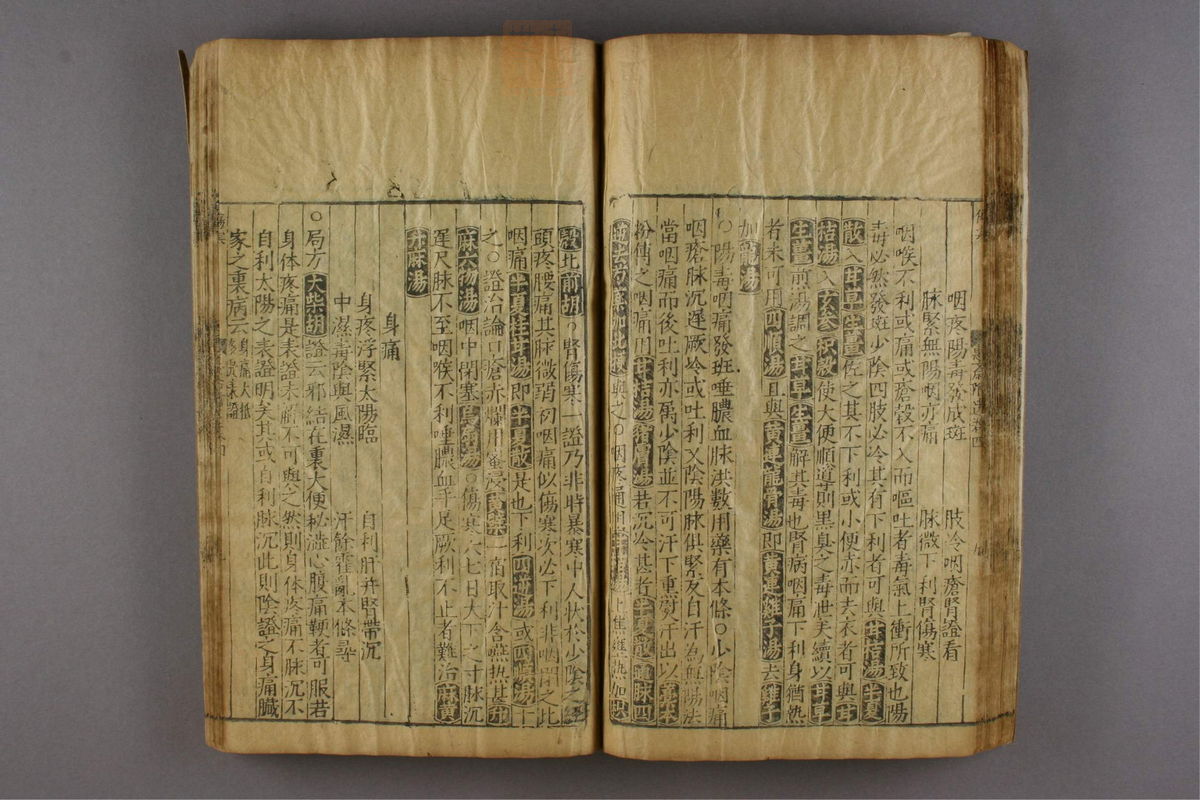 咽疼陽毒發成斑　　肢冷咽瘡腎證看
脉緊無陽咽亦痛　　脉微下利腎傷寒
咽喉不利或痛或瘡穀不入而嘔吐者毒氣上衝所致也陽
毒必然發斑少陰四肢必冷其有下利者可與甘桔湯半夏
散入甘草生薑佐之其不下利或小便赤而去衣者可與甘
桔湯入玄參枳殼使大便順導則黑臭之毒泄矣續以甘草
生薑煎湯調之甘草生薑解其毒也腎病咽痛下利身猶熱
者未可用四順湯且與黃連龍骨湯即黃連雞子湯去雞子
加龍湯
○陽毒咽痛發斑唾膿血脉洪數用藥有本條○少陰咽痛
咽瘡脉沉遲厥冷或吐利又陰陽脉俱緊反自汗為無陽法
當咽痛而後吐利亦屬少陰並不可汗下重蔚汗出以藁本
粉傅之咽痛用甘桔湯猪膚湯若沉冷甚者半夏散通脉四
逆去芍藥加北梗與之○咽疼通用上焦壅熱加枳
殼北前胡○腎傷寒一證乃非時暴寒中人伏於少陰之經
頭疼腰痛其脉微弱初咽痛似傷寒次必下利非咽胃之此
咽痛半夏桂甘湯即半夏散是也下利四逆湯或四順湯主
之○證治論口瘡赤爛用蜜浸黃蘗一宿取汁含嚥熱甚升
麻六物湯咽中閉塞烏翣湯○傷寒六七日大下之寸脉沉
遲尺脉不至咽喉不利唾膿血手足厥利不止者難治麻黃
升麻湯
身痛
身疼浮緊太陽臨　　自利肝并腎帶沉
中濕毒陰與風濕　　汗餘霍亂本條尋
○局方大柴胡證云邪結在裏大便秘澁心腹痛鞕者可服若
身体疼痛是表證未解不可與之然則身体疼痛不脉沉不
自利太陽之表證明矣其或自利脉沉此則陰證之身痛臟
家之裏病云身痛大抵